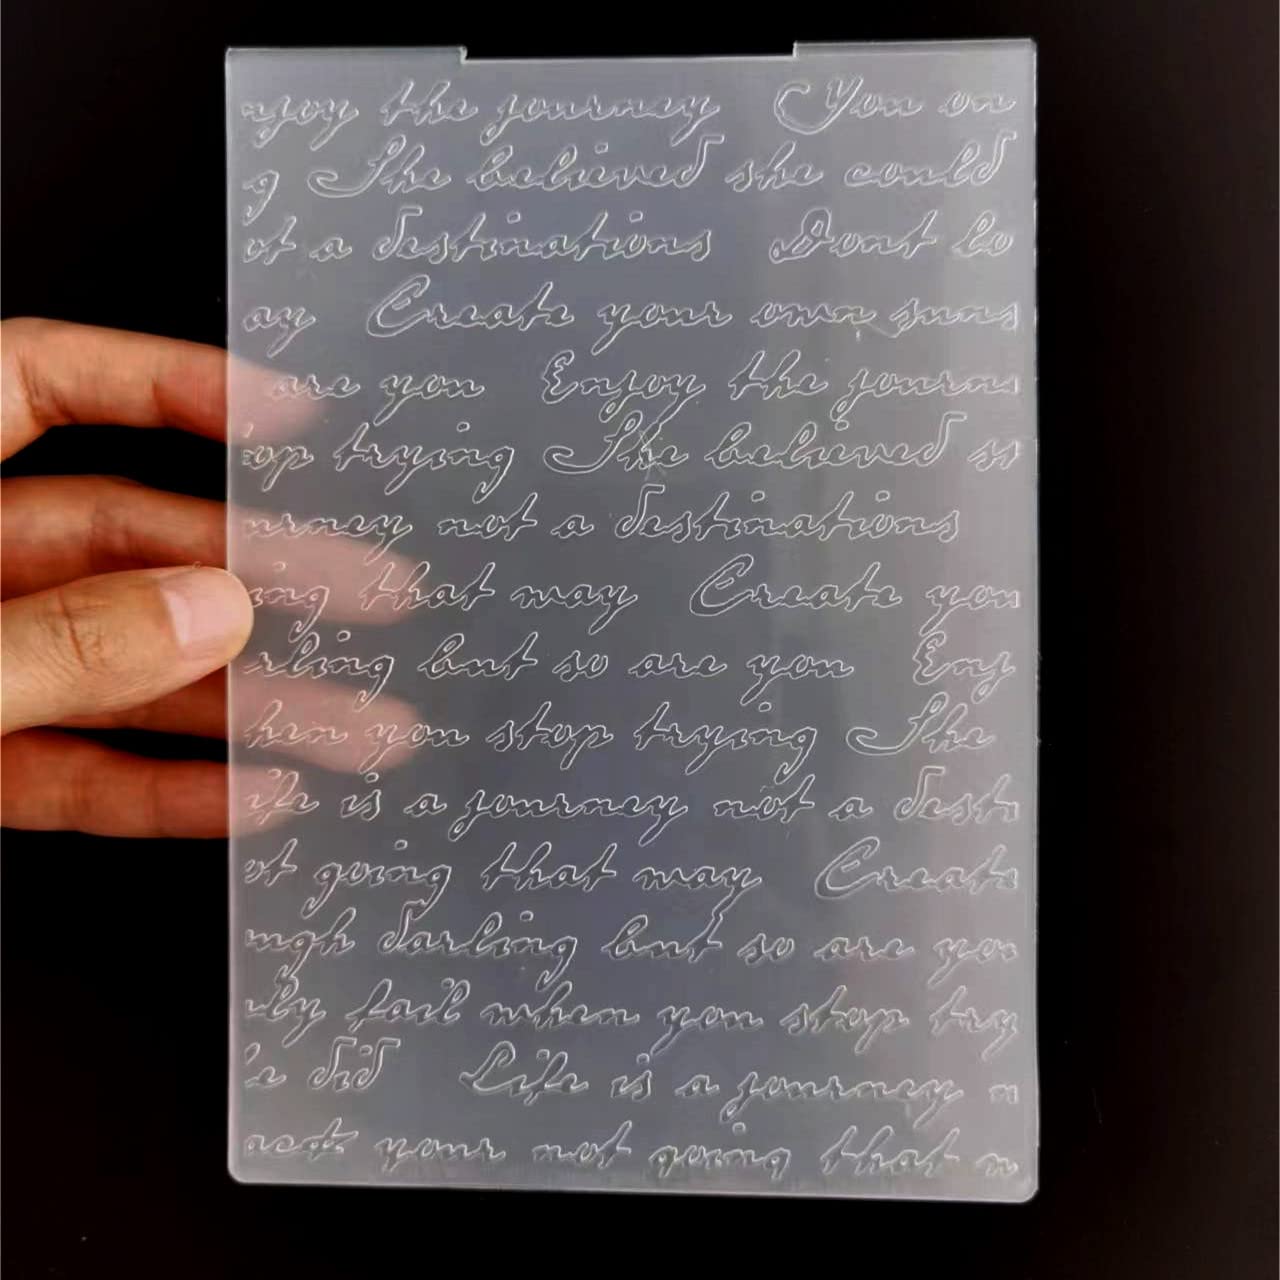 njoy the journey You on
g She believed she could
ot a destinations Dont lo
ay Create your own suns
are you Enjoy the journe
op trying She believed s
urney not a destinations
ing that may Create you
rling but so are you Enj
hen you stop trying She
ife is a journey not a desti
ot going that may Create
ugh darling but so are you
ly fail when you stop try
e did Life is a journey n
act your not going that m